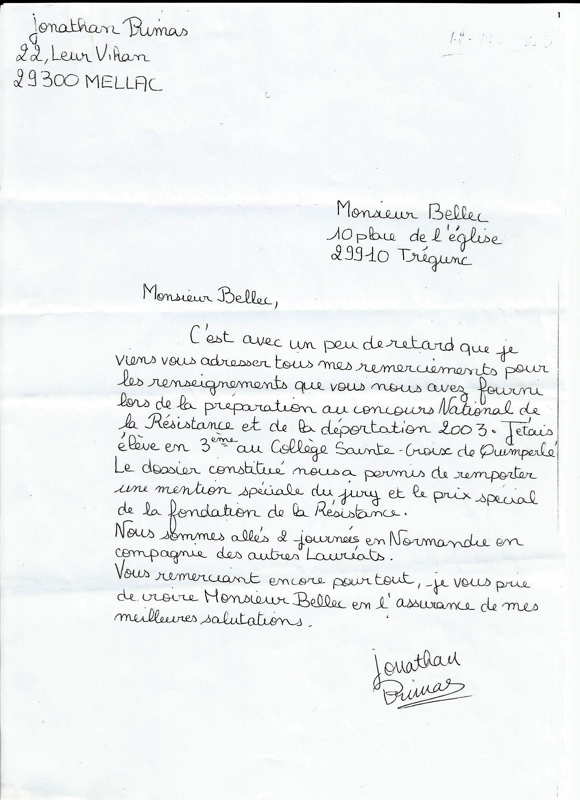 1
Jonathan Primas
22, Leur Vihan
29300 MELLAC
Monsieur Bellec
10 place de l'église
29910 Trégunc
Monsieur Bellec,
C'est avec un peu de retard que je
viens vous adresser tous mes remerciements pour
les renseignements que vous nous avez fourni
lors de la préparation au concours National de
la Résistance et de la déportation 2003. J'étais
élève en 3ème au Collège Sainte-Croix de Quimperlé
Le dossier constitué nous a permis de remporter
une mention spéciale du jury et le prix spécial
de la fondation de la Résistance.
Nous sommes allés 2 journées en Normandie en
compagnie des autres Lauréats.
Vous remerciant encore pour tout, je vous prie
de croire Monsieur Bellec en l'assurance de mes
meilleures salutations.
Jonathan
Primas